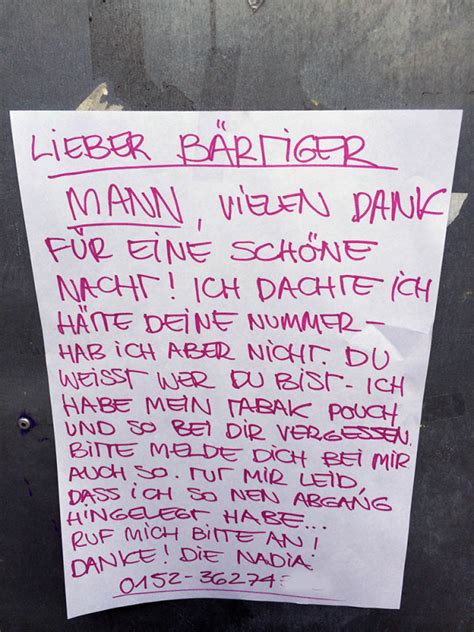 LIEBER BÄRTIGER
MANN, VIELEN DANK
FÜR EINE SCHÖNE
NACHT! ICH DACHTE ICH
HÄTTE DEINE NUMMER –
HAB ICH ABER NICHT. DU
WEISST WER DU BIST - ICH
HABE MEIN TABAK POUCH
UND SO BEI DIR VERGESSEN.
BITTE MELDE DICH BEI MIR
AUCH SO. TUT MIR LEID,
DASS ICH SO NEN ABGANG
HINGELEGT HABE...
RUF MICH BITTE AN!
DANKE! DIE NADIA
0152-36274